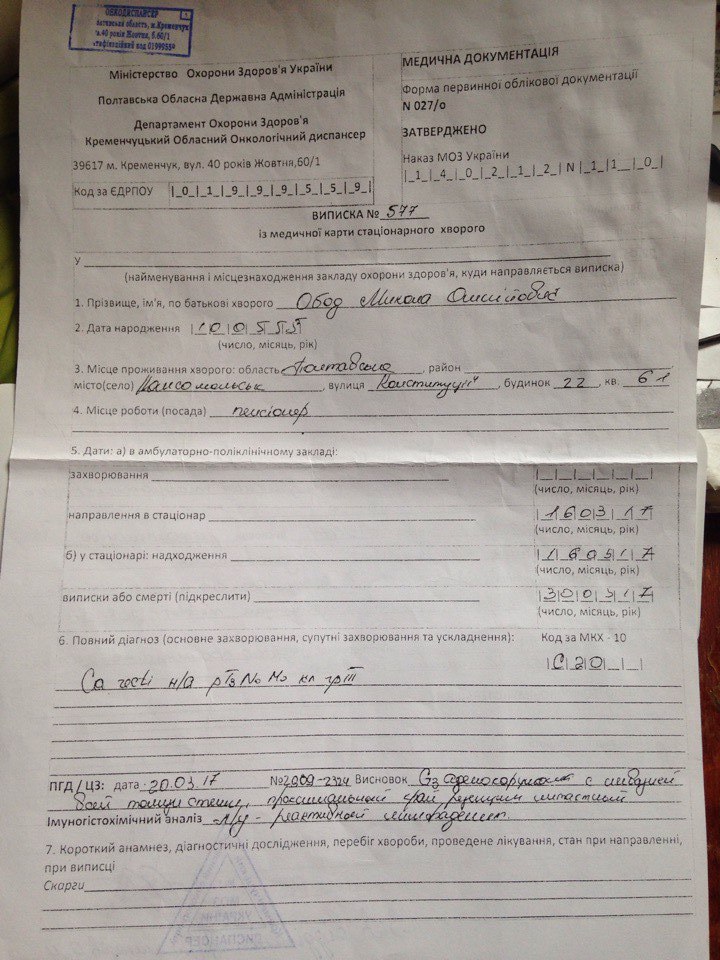 ОНКОДИСПАНСЕР
Полтавська область, м.Кременчук
вул.40 років Жовтня, б.60/1
ідентифікаційний код 01999559
Міністерство Охорони Здоров'я України
Полтавська Обласна Державна Адміністрація
Департамент Охорони Здоров'я
Кременчуцький Обласний Онкологічний диспансер
39617 м. Кременчук, вул. 40 років Жовтня,60/1
Код за ЄДРПОУ |_0_|_1_|_9_|_9_|_9_|_5_|_5_|_9_|
МЕДИЧНА ДОКУМЕНТАЦІЯ
Форма первинної облікової документації
N 027/о
ЗАТВЕРДЖЕНО
Наказ МОЗ України
|_1_|_4_|_0_|_2_|_1_|_2_| N |_1_|_1_|_0_|
ВИПИСКА № 577
із медичної карти стаціонарного хворого
У
(найменування і місцезнаходження закладу охорони здоров'я, куди направляється виписка)
1. Прізвище, ім'я, по батькові хворого Обод Микола
2. Дата народження |1|0|0|5|5|5|
(число, місяць, рік)
3. Місце проживання хворого: область Полтавська, район
місто(село) Комсомольськ, вулиця Конституції, будинок 22, кв. 61
4. Місце роботи (посада) пенсіонер
5. Дати: а) в амбулаторно-поліклінічному закладі:
захворювання |_|_|_|_|_|_|
(число, місяць, рік)
направлення в стаціонар |1|6|0|3|1|7|
(число, місяць, рік)
б) у стаціонарі: надходження |1|6|0|3|1|7|
(число, місяць, рік)
виписки або смерті (підкреслити) |3|0|0|3|1|7|
(число, місяць, рік)
6. Повний діагноз (основне захворювання, супутні захворювання та ускладнення): Код за МКХ - 10
|С|2|0|_|_|
Са recti н/а рТ3N0M0 кл грІІІ
ПГД / ЦЗ: дата 20.03.17 №2909-2324 Висновок G3 аденокарцинома с инвазией
всей толщи стенки, проксимальный край
Імуногістохімічний аналіз л/у - реактивный лимфаденит
7. Короткий анамнез, діагностичні дослідження, перебіг хвороби, проведене лікування, стан при направленні,
при виписці
Скарги
УКРАЇНИ
ДИСПАНСЕР